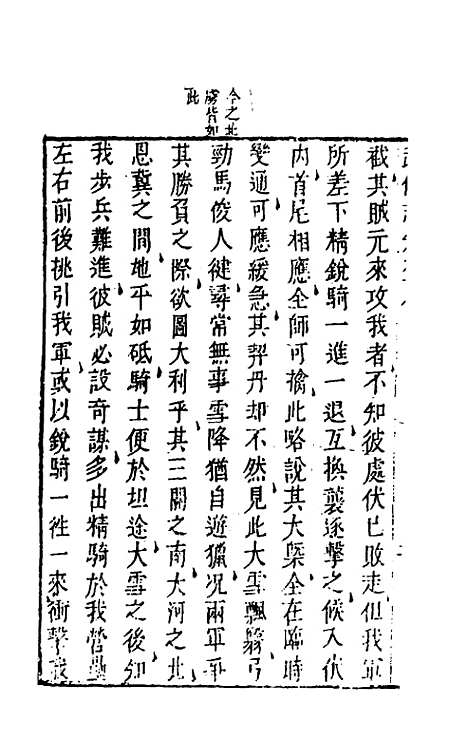 今之北
虜皆如
此
截其賊元來攻我者不知彼處伏已敗走但我軍
所差下精銳騎一進一退互換襲逐擊之候入伏
内首尾相應全師可擒此略說其大槩全在臨時
變通可應緩急其契丹却不然見此大雪飄飜弓
勁馬俊人健尋常無事雪降猶自遊獵况兩軍爭
其勝負之際欲圖大利乎其三關之南大河之北
恩冀之間地平如砥騎士便於坦途大雪之後知
我步兵難進彼賊必設奇謀多出精騎於我營壘
左右前後挑引我軍或以銳騎一徃一來衝擊我